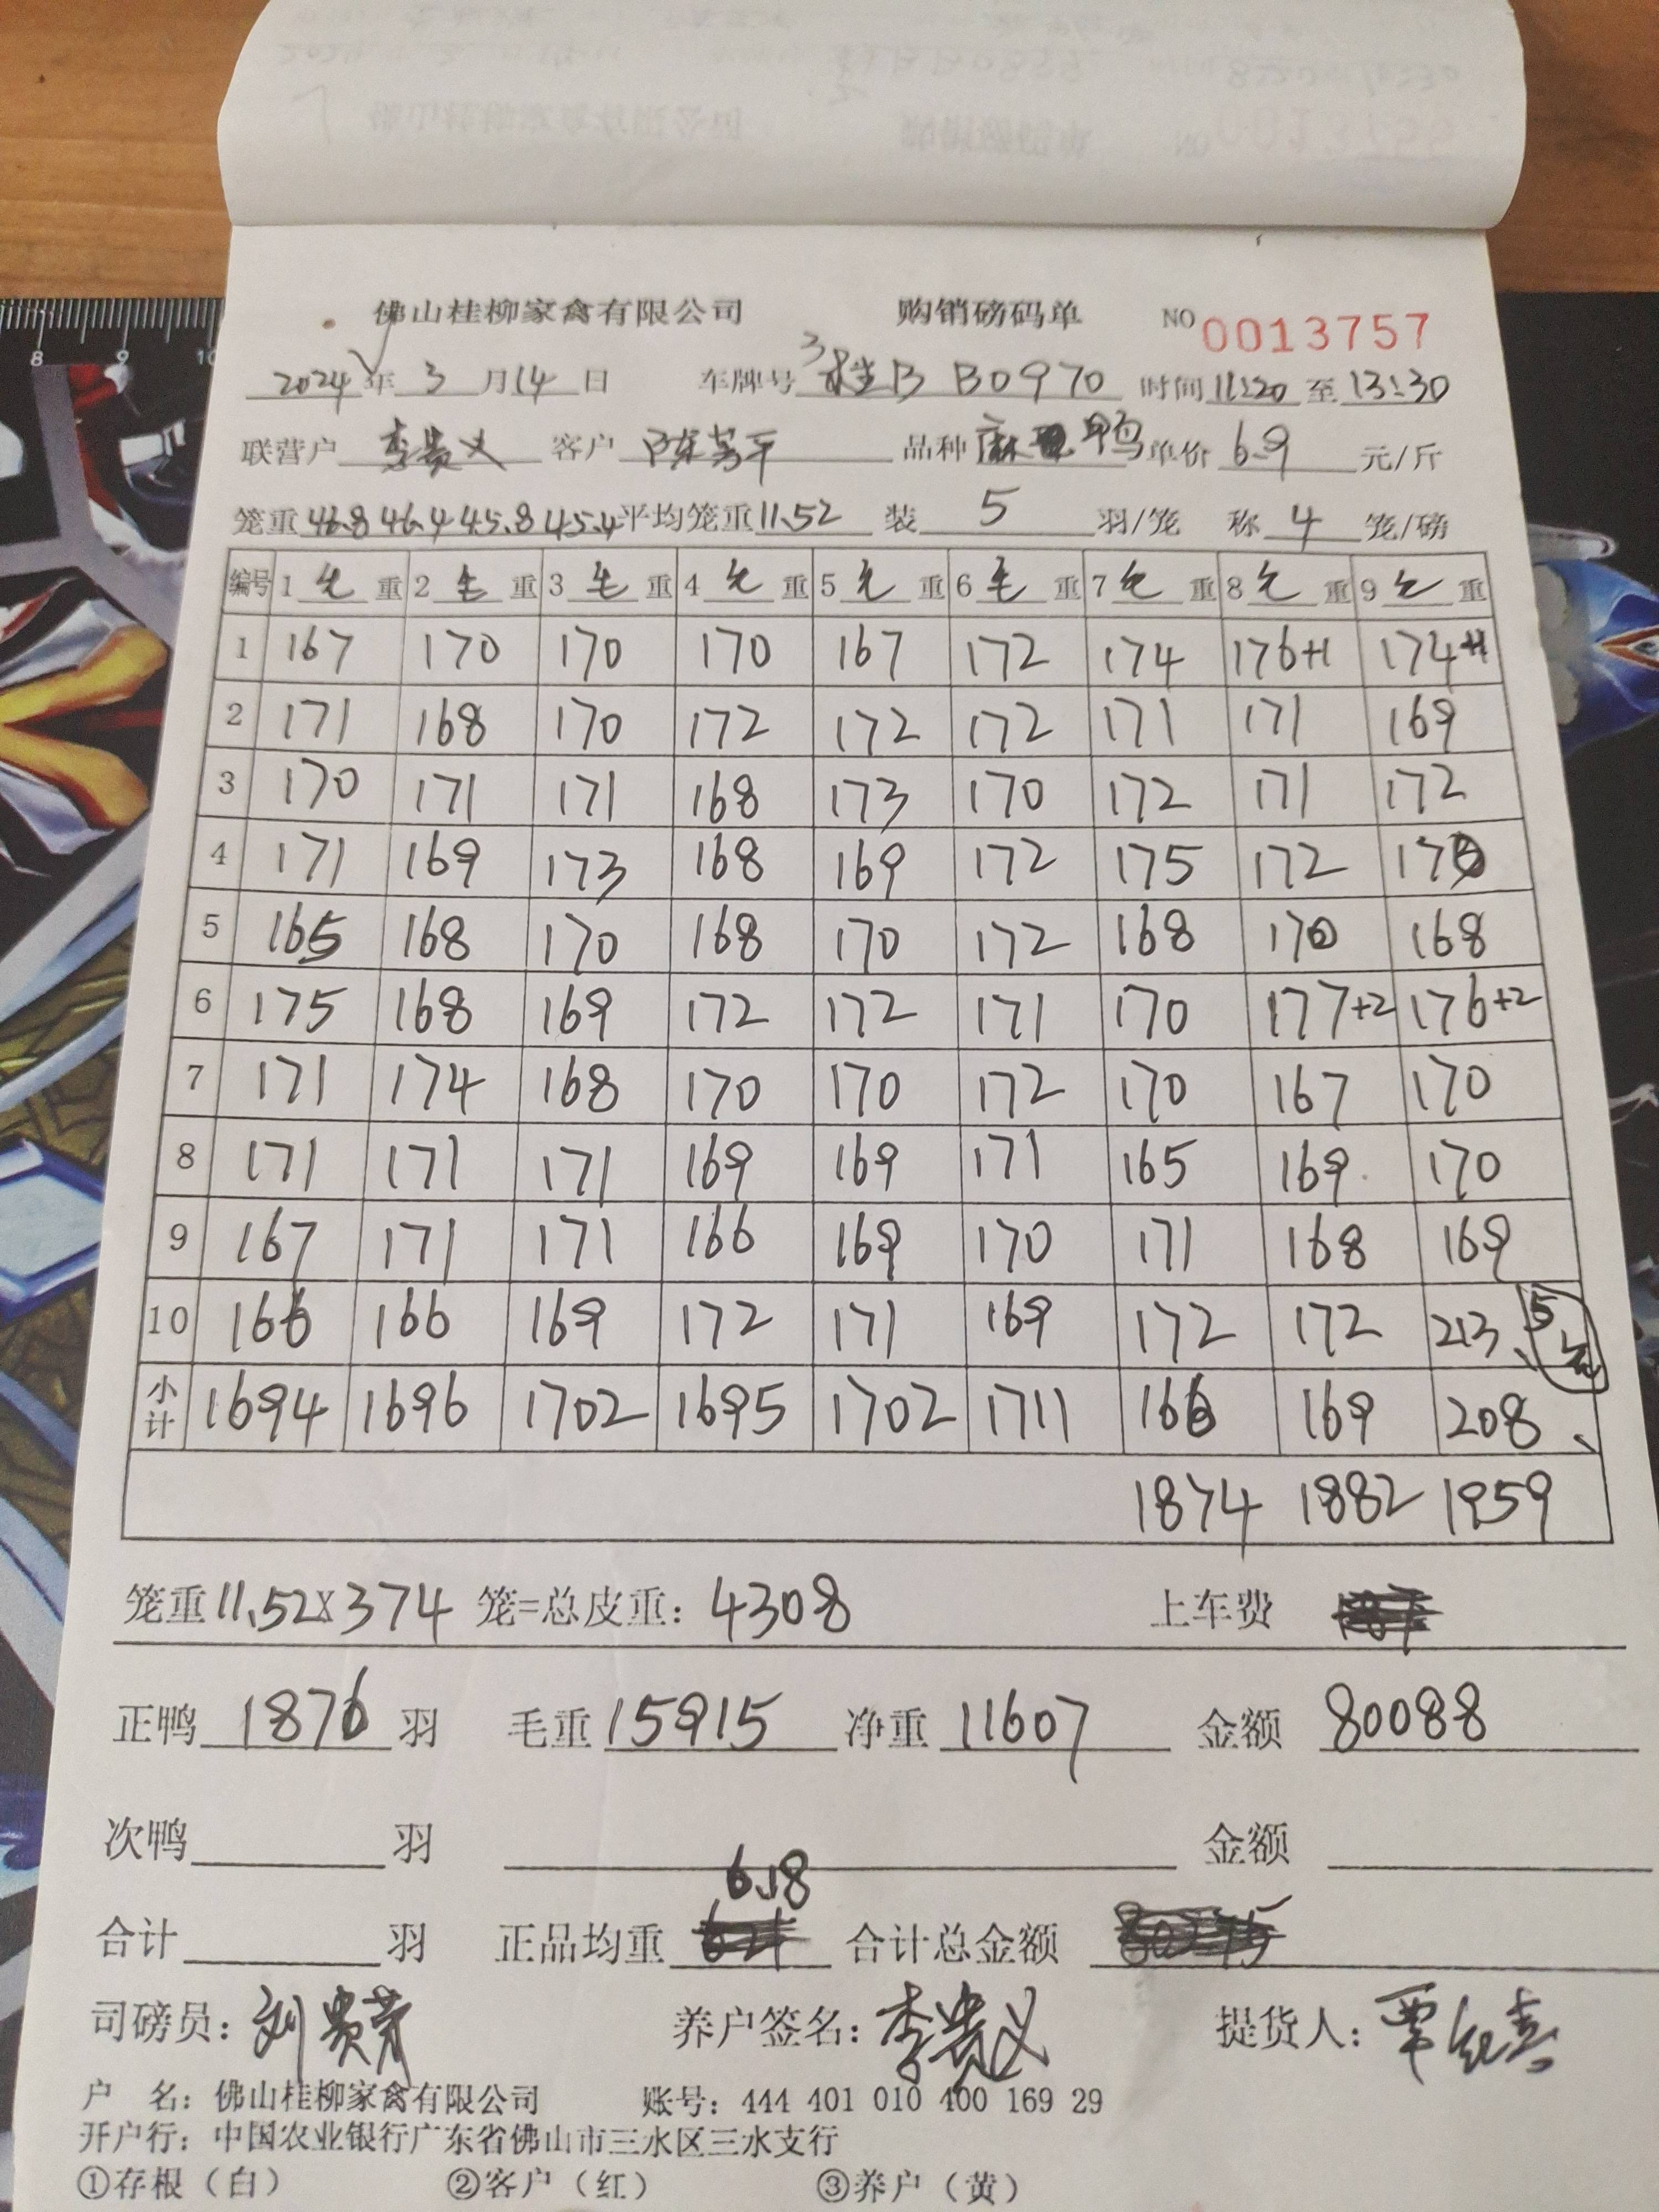 佛山桂柳家禽有限公司 购销磅码单 NO 0013757
2024年3月14日 车牌号 桂B B0970 时间11:20至13:30
联营户 李贵义 客户 陈芳平 品种 麻鸭 单价 6.9 元/斤
笼重 46.8 46.4 45.8 45.4 平均笼重 11.52 装 5 羽/笼 称 4 笼/磅
编号 1 毛 重 2 毛 重 3 毛 重 4 毛 重 5 毛 重 6 毛 重 7 毛 重 8 毛 重 9 毛 重
1 167 170 170 170 167 172 174 176+1 174+1
2 171 168 170 172 172 172 171 171 169
3 170 171 171 168 173 170 172 171 172
4 171 169 173 168 169 172 175 172 170
5 165 168 170 168 170 172 168 170 168
6 175 168 169 172 172 171 170 177+2 176+2
7 171 174 168 170 170 172 170 167 170
8 171 171 171 169 169 171 165 169 170
9 167 171 171 166 169 170 171 168 169
10 166 166 169 172 171 169 172 172 213 5
小计 1694 1696 1702 1695 1702 1711 166 169 208
1874 1882 1959
笼重 11.52 X 374 笼=总皮重: 4308 上车费
正鸭 1876 羽 毛重 15915 净重 11607 金额 80088
次鸭 羽 金额
6.18
合计 羽 正品均重 合计总金额
司磅员: 刘贵芳 养户签名: 李贵义 提货人:
户 名: 佛山桂柳家禽有限公司 账号: 444 401 010 400 169 29
开户行: 中国农业银行广东省佛山市三水区三水支行
①存根（白） ②客户（红） ③养户（黄）